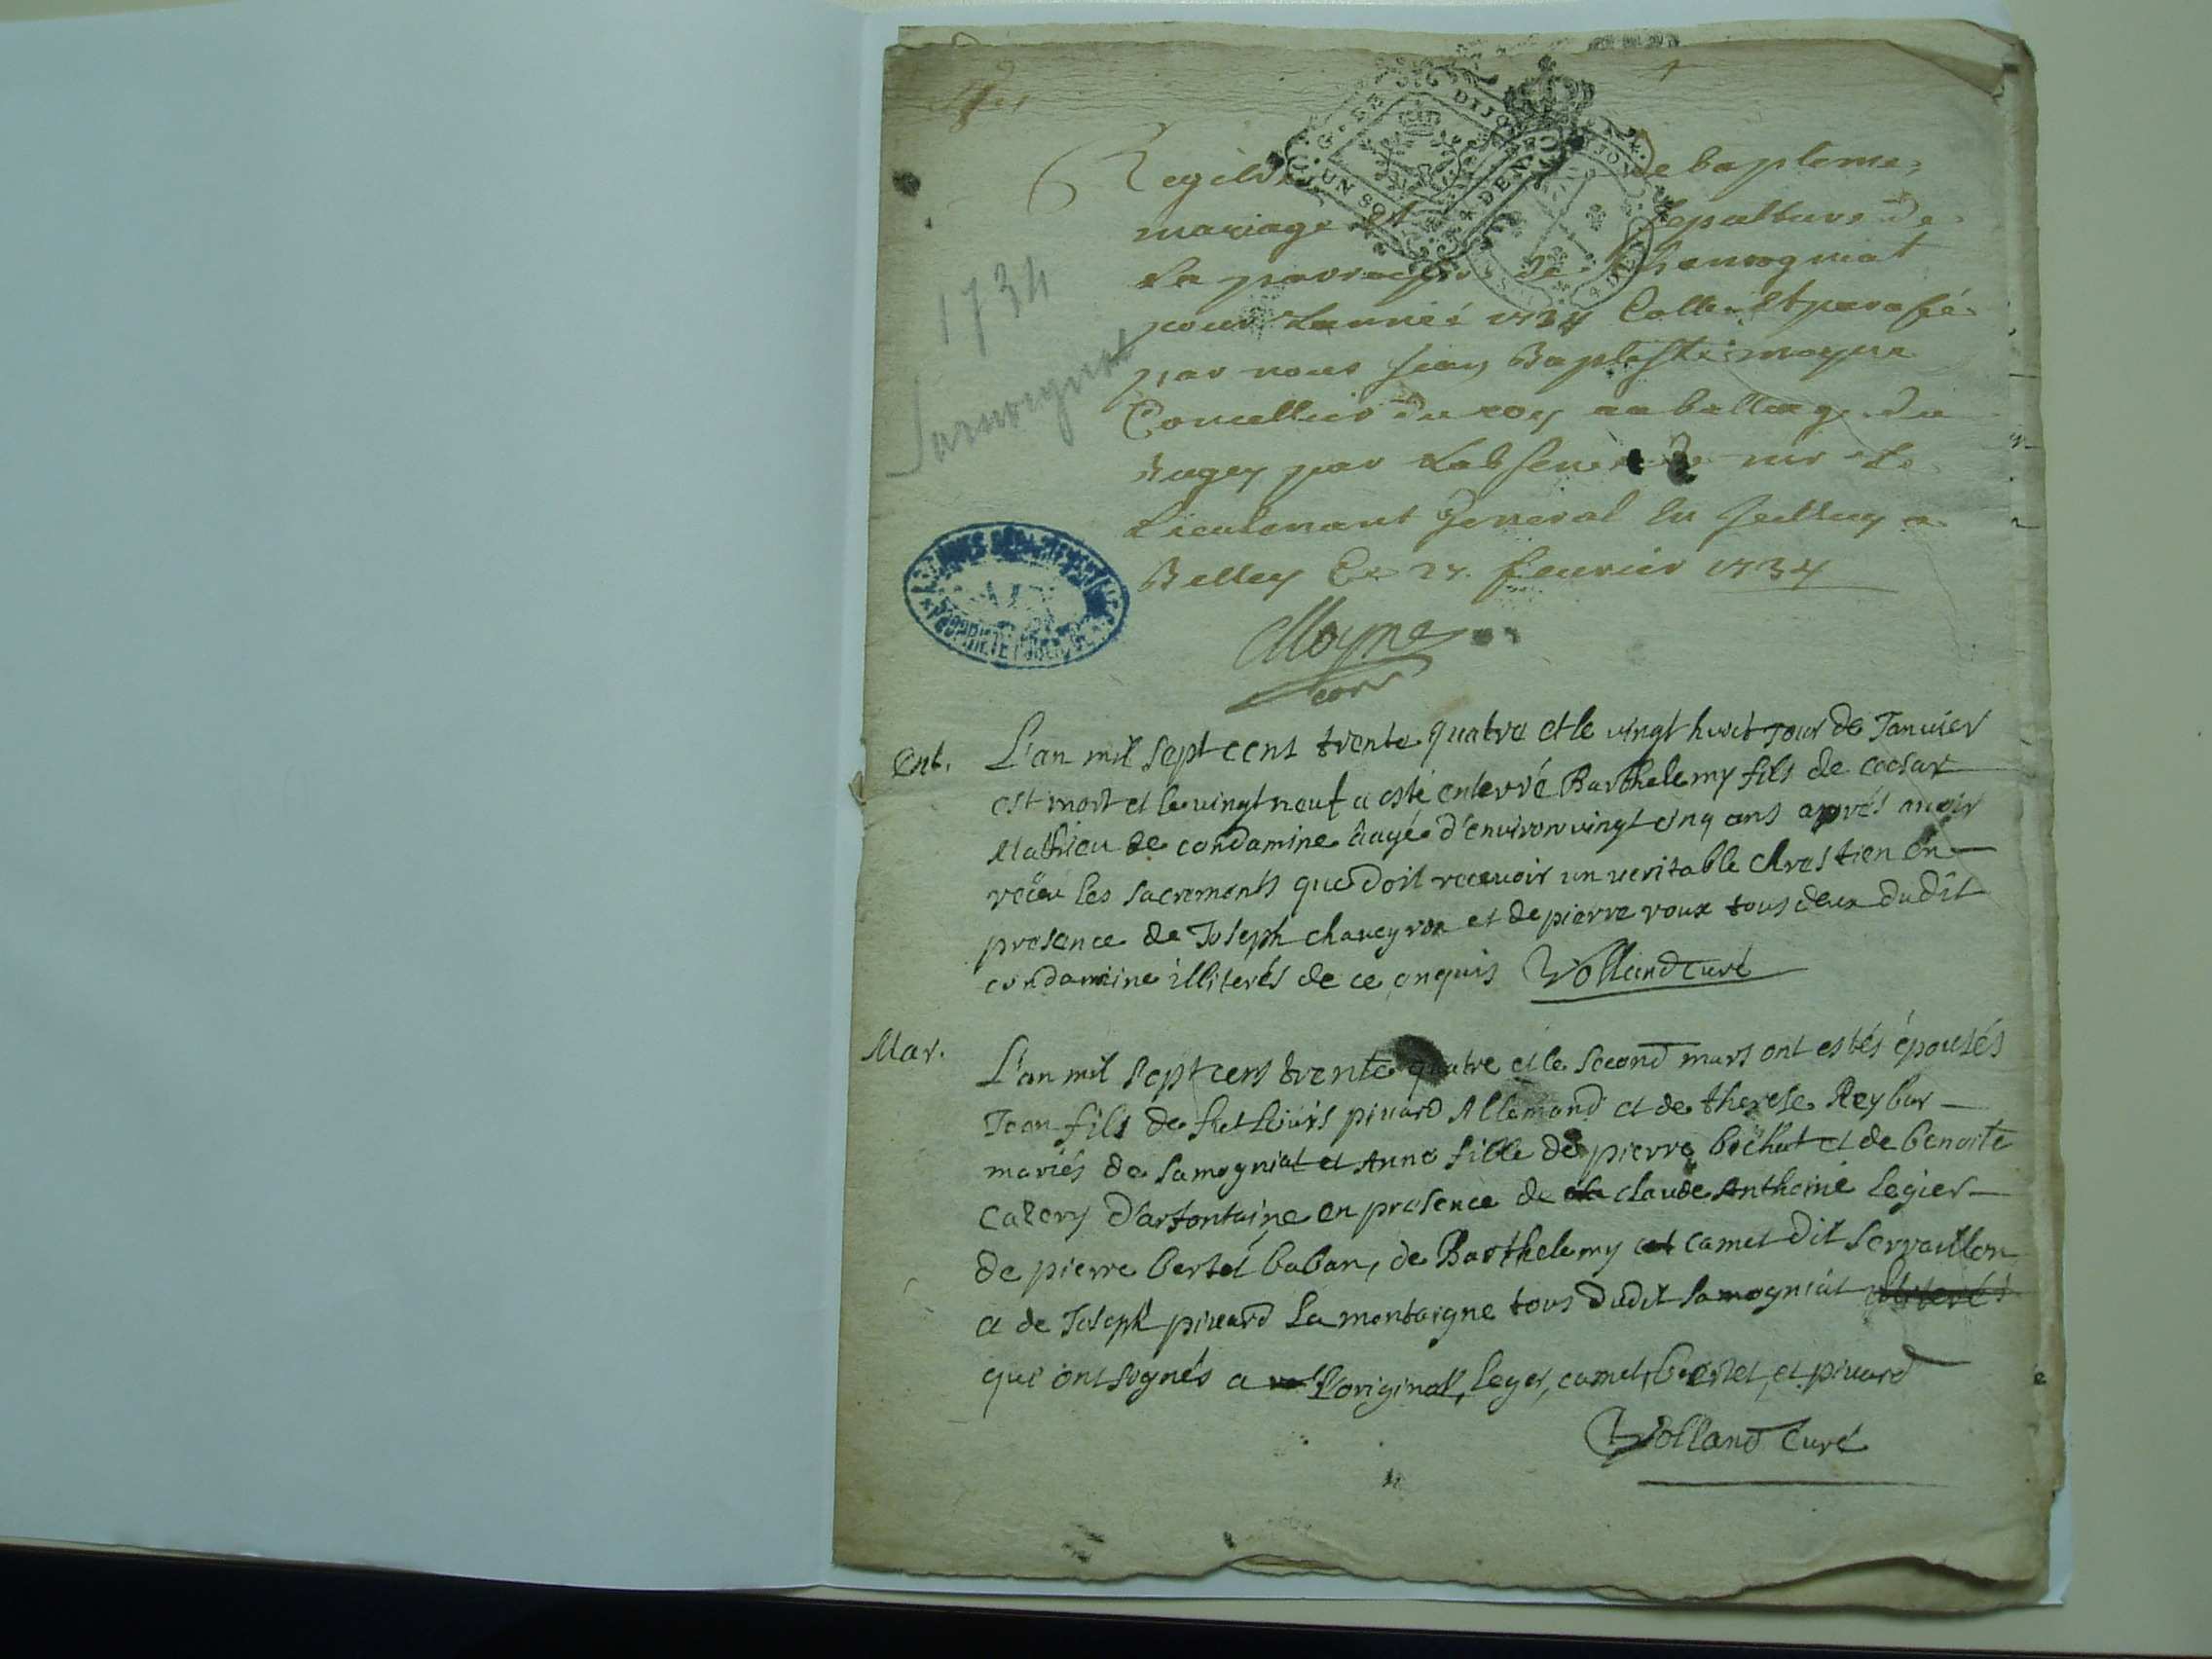 1
Registre de bapteme
mariage et sepulture de
La parroisse de Chamognat
pour Lannée 1734 Cotté Et parafé
par nous Jean Baptiste moyne
Concellier du roy au balliage du
bugey par Labsence de mr Le
Lieutenant General
Belley Ce 27. fevrier 1734
1734
Samognat
UN SOL
DIJON
4 DEN
Moyne
Ent. L'an mil sept cens trente quatre et le vingt huict Jour de Januier
est mort et le vingt neuf a esté enterré Barthelemy fils de coesar
Mathieu de condamine aagé d'environ vingt cinq ans aprés auoir
receu les sacrements que doit receuoir un veritable chrestien en
presence de Joseph chaveyron et de pierre roux tous deux dudit
condamine illiterés de ce enquis Volland curé
Mar. L'an mil sept cens trente quatre et le second mars ont estés épousés
Jean fils de fut Louis piuard Allemand et de therese Reybar
mariés de samogniat et Anne fille de pierre bochut et de benoite
Calery d'arfontaine en presence de claude Anthoine legier
de pierre bertet baban, de Barthelemy camet dit servaillon
et de Joseph piuard La montaigne tous dudit samogniat illiterés
qui ont signés a l'original, leger, camet, bertet, et piuard
Volland curé